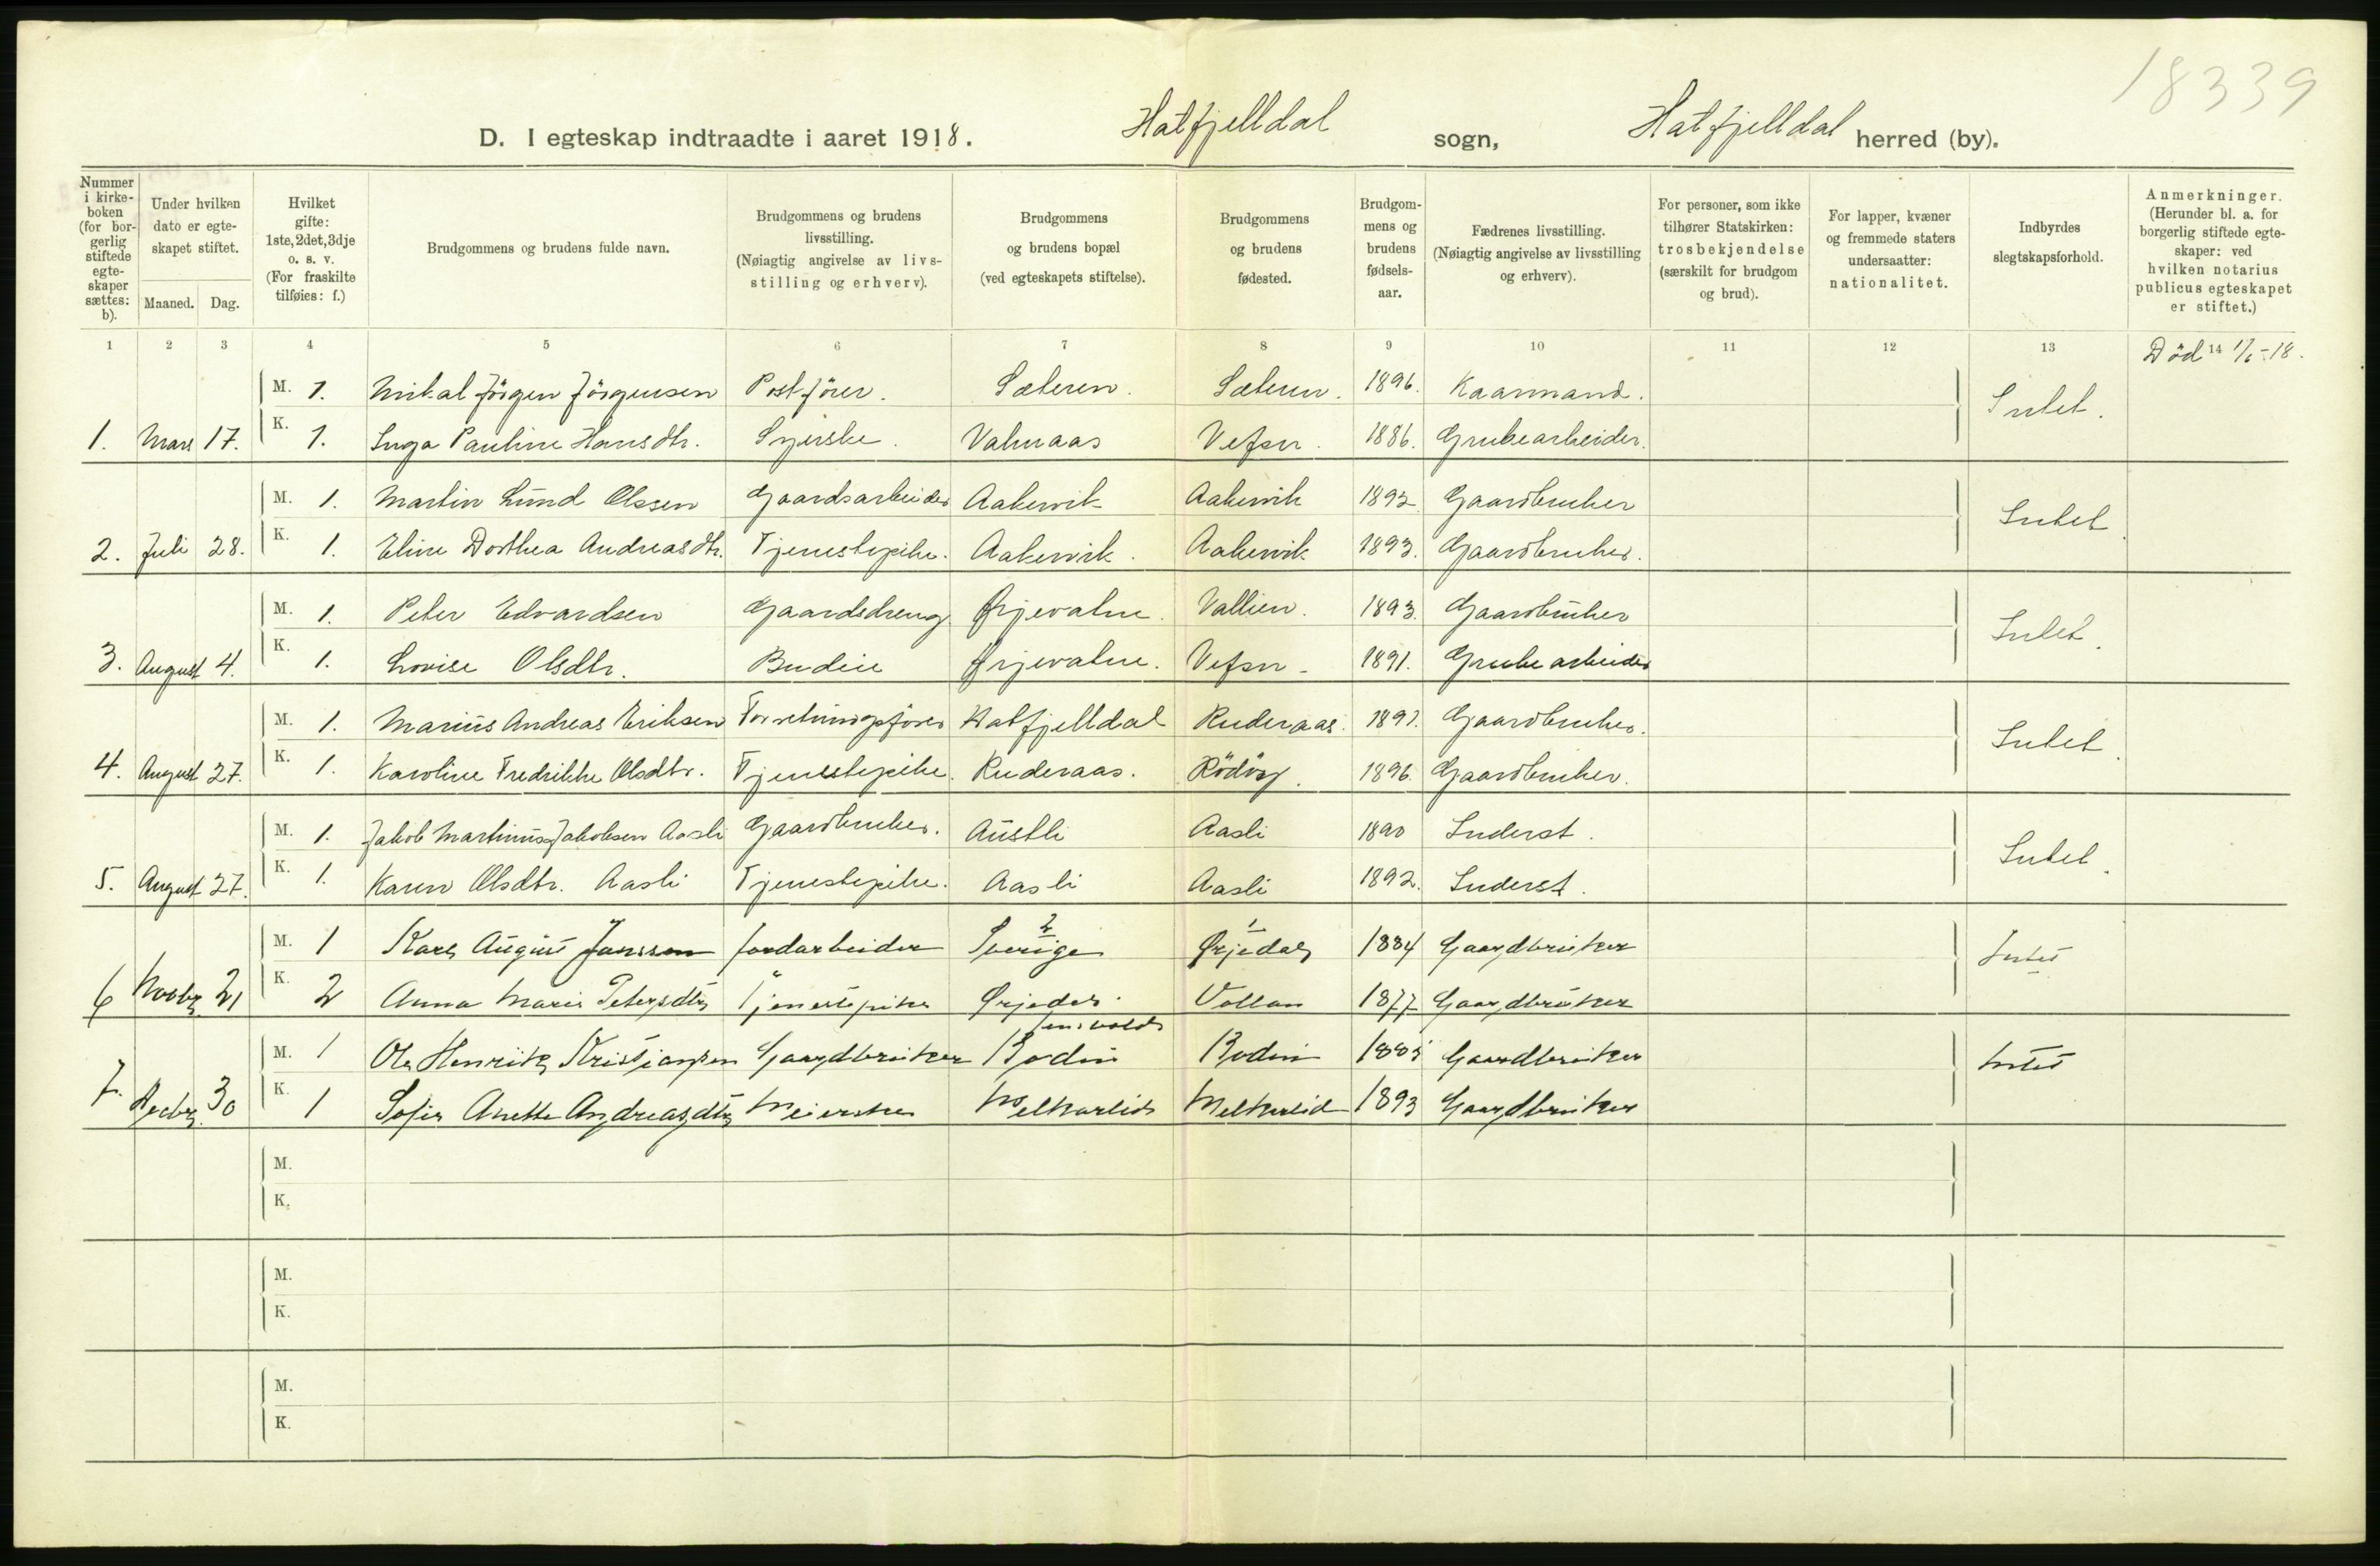 18339
D. I egteskap indtraadte i aaret 1918. Hatfjelldal sogn, Hatfjelldal herred (by).
Nummer i kirke-boken (for bor-gerlig stiftede egte-skaper sættes: b).
Under hvilken dato er egte-skapet stiftet.
Maaned. Dag.
Hvilket gifte: 1ste, 2det, 3dje o. s. v. (For fraskilte tilføies: f.)
Brudgommens og brudens fulde navn.
Brudgommens og brudens livsstilling. (Nøiagtig angivelse av livs-stilling og erhverv).
Brudgommens og brudens bopæl (ved egteskapets stiftelse).
Brudgommens og brudens fødested.
Brudgom-mens og brudens fødsels-aar.
Fædrenes livsstilling. (Nøiagtig angivelse av livsstilling og erhverv).
For personer, som ikke tilhører Statskirken: trosbekjendelse (særskilt for brudgom og brud).
For lapper, kvæner og fremmede staters undersaatter: nationalitet.
Indbyrdes slegtskapsforhold.
Anmerkninger. (Herunder bl. a. for borgerlig stiftede egte-skaper: ved hvilken notarius publicus egteskapet er stiftet.)
1 2 3 4 5 6 7 8 9 10 11 12 13 14
Død 1/6-18.
M. 1. Mikal Jörgen Jörgensen Postförer. Sæteren. Sæteren. 1896. Kaarmand. Intet.
1. Mars 17. K. 1. Inga Pauline Hansdtr. Syerske. Valmaas Vefsn. 1886. Grubearbeider.
M. 1. Martin Lund Olssen Gaardsarbeider Aakervik Aakervik 1892 Gaardbruker Intet.
2. Juli 28. K. 1. Eline Dorthea Andreasdtr. Tjenestepike. Aakervik. Aakervik 1893. Gaardbruker.
M. 1. Peter Edvardsen Gaardsdreng Ørjevatne. Vallien. 1893. Gaardbruker Intet.
3. August 4. K. 1. Lovise Olsdtr. Budeie Ørjevatne. Vefsn 1891. Grubearbeider
M. 1. Marius Andreas Eriksen Forretningsfører Hatfjelldal Ruderaas. 1891. Gaardbruker. Intet.
4. August 27. K. 1. Karoline Fredrikke Olsdtr. Tjenestepike. Ruderaas. Rödög. 1896. Gaardbruker.
M. 1. Jakob Martinus Jakobsen Aasli Gaardbruker. Austli Aasli 1890 Inderst. Intet.
5. August 27. K. 1. Karen Olsdtr. Aasli Tjenestepike. Aasli Aasli 1892. Inderst.
M. 1 Karl August Janssen Jordarbeider Sverige 2 Ørjedal 1 1884 Gaardbruker Intet
6 Novbr. 21 K. 2 Anna Marie Petersdtr Tjenestepike Ørjedal. Vollan 1877 Gaardbruker
M. 1 Ole Henrik Kristiansen Gaardbruker Bodin Bodin Gaardbruker Intet
7. Decbr. 30 K. 1 Sofie Anette Andreasdtr Meierske Melkarlid Melkarlid 1893 Gaardbruker
M.
K.
M.
K.
M.
K.